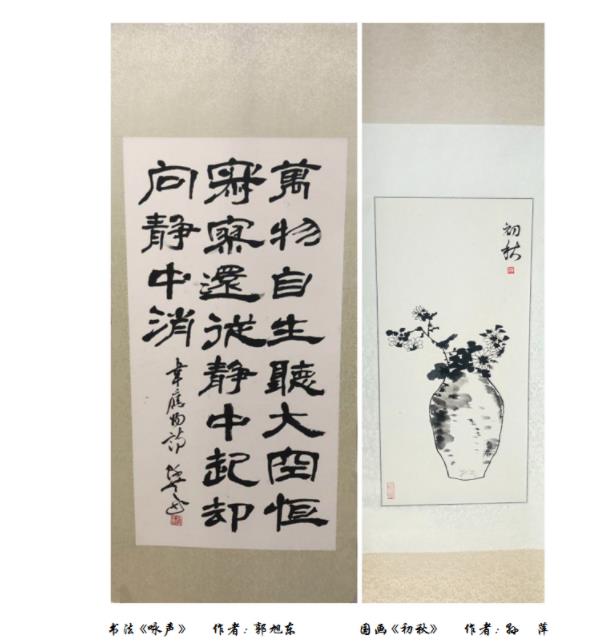 萬物自生聽大空恒
寂寥還從静中起却
向静中消
韋應物詩
初秋
书法《咏声》 作者：郭旭东
国画《初秋》 作者：孙 萍